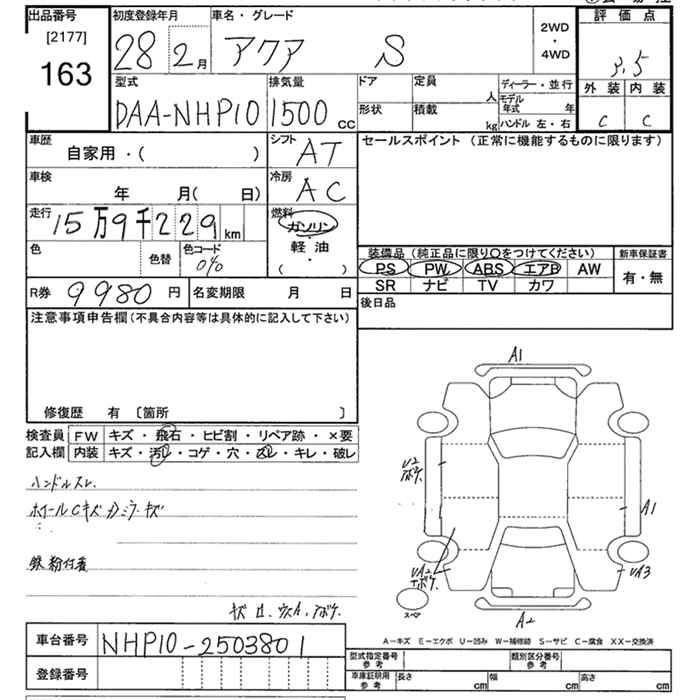 出品番号
[2177]
163
初度登録年月
28 2月
車名・グレード
アクア S
2WD
・
4WD
評価点
3.5
外装 内装
C C
型式
DAA-NHP10
排気量
1500 CC
ドア
定員
人
形状
積載
kg
ディーラー・並行
モデル年式 年
ハンドル 左・右
車歴
自家用・( )
シフト
AT
セールスポイント (正常に機能するものに限ります)
車検
年 月( 日)
冷房
AC
走行
15万9千229km
燃料
ガソリン
・
軽油
・
( )
色
色替
色コード
040
装備品 (純正品に限り○をつけてください)
新車保証書
PS PW ABS エアB AW
SR ナビ TV カワ
有・無
R券 9980円
名変期限 月 日
後日品
注意事項申告欄(不具合内容等は具体的に記入して下さい)
修復歴 有 [箇所 ]
検査員
記入欄
FW キズ・飛石・ヒビ割・リペア跡・×要
内装 キズ・汚レ・コゲ・穴・スレ・キレ・破レ
ハンドルスレ
ホイールCキズ ガミラーキズ
鉄粉付着
A1
U2
ボケ
A1
UA2
エボケ
UA3
スペア
A2
A-キズ E-エクボ U-凹み W-補修跡 S-サビ C-腐食 XX-交換済
車台番号
NHP10-2503801
登録番号
型式指定番号
参考
類別区分番号
参考
車庫証明用
参考
長さ cm
幅 cm
高さ cm